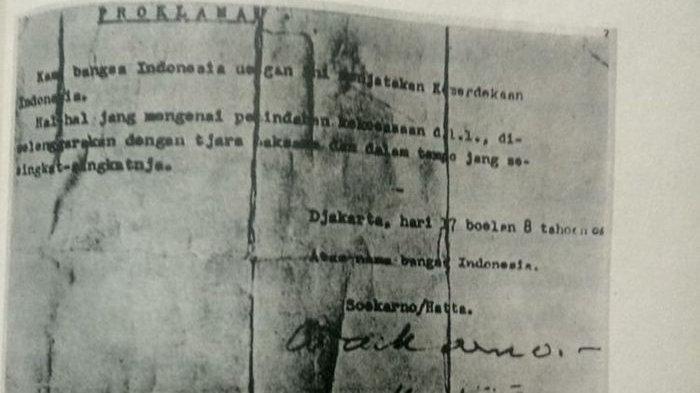 P R O K L A M A S I
Kami bangsa Indonesia dengan ini menjatakan Kemerdekaan
Indonesia.
Hal-hal jang mengenai pemindahan kekoeasaan d.l.l., di-
selenggarakan dengan tjara saksama dan dalam tempo jang se-
singkat-singkatnja.
Djakarta, hari 17 boelan 8 tahoen 05
Atas nama bangsa Indonesia.
Soekarno/Hatta.
Soekarno.-